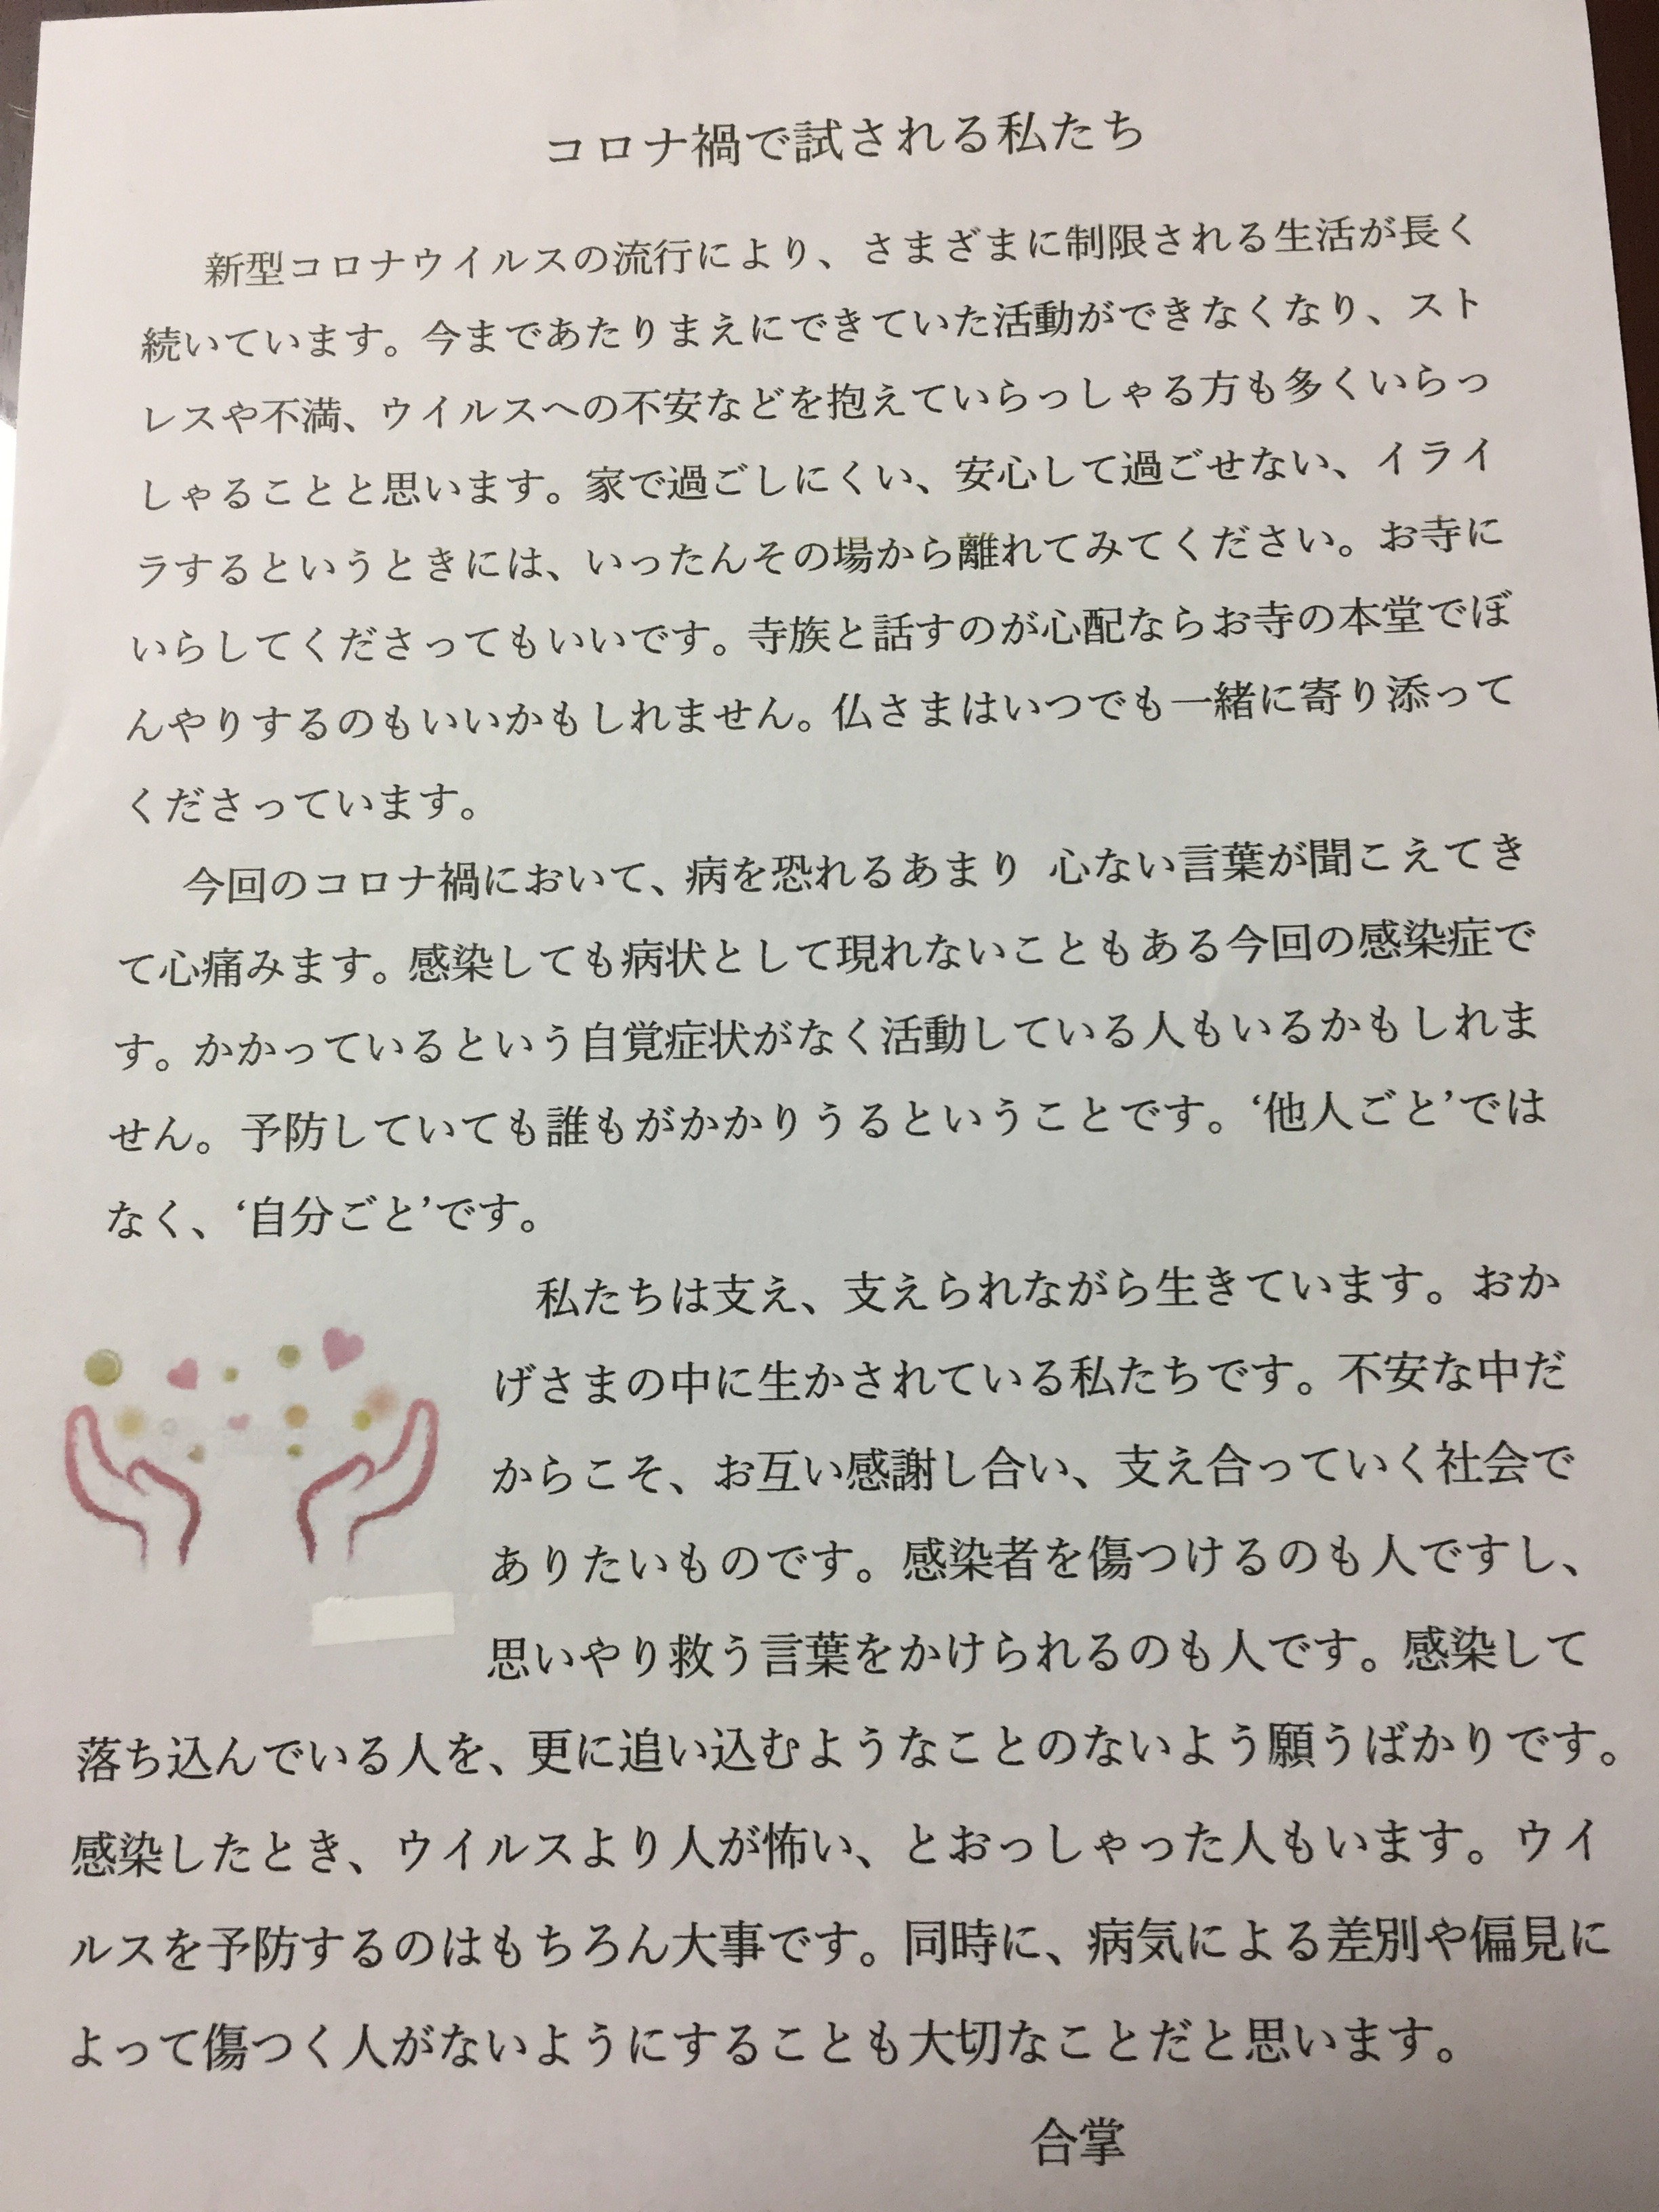 コロナ禍で試される私たち
新型コロナウイルスの流行により、さまざまに制限される生活が長く
続いています。今まであたりまえにできていた活動ができなくなり、スト
レスや不満、ウイルスへの不安などを抱えていらっしゃる方も多くいらっ
しゃることと思います。家で過ごしにくい、安心して過ごせない、イライ
ラするというときには、いったんその場から離れてみてください。お寺に
いらしてくださってもいいです。寺族と話すのが心配ならお寺の本堂でぼ
んやりするのもいいかもしれません。仏さまはいつでも一緒に寄り添って
くださっています。
今回のコロナ禍において、病を恐れるあまり 心ない言葉が聞こえてき
て心痛みます。感染しても病状として現れないこともある今回の感染症で
す。かかっているという自覚症状がなく活動している人もいるかもしれま
せん。予防していても誰もがかかりうるということです。‘他人ごと’では
なく、‘自分ごと’です。
私たちは支え、支えられながら生きています。おか
げさまの中に生かされている私たちです。不安な中だ
からこそ、お互い感謝し合い、支え合っていく社会で
ありたいものです。感染者を傷つけるのも人ですし、
思いやり救う言葉をかけられるのも人です。感染して
落ち込んでいる人を、更に追い込むようなことのないよう願うばかりです。
感染したとき、ウイルスより人が怖い、とおっしゃった人もいます。ウイ
ルスを予防するのはもちろん大事です。同時に、病気による差別や偏見に
よって傷つく人がないようにすることも大切なことだと思います。
合掌